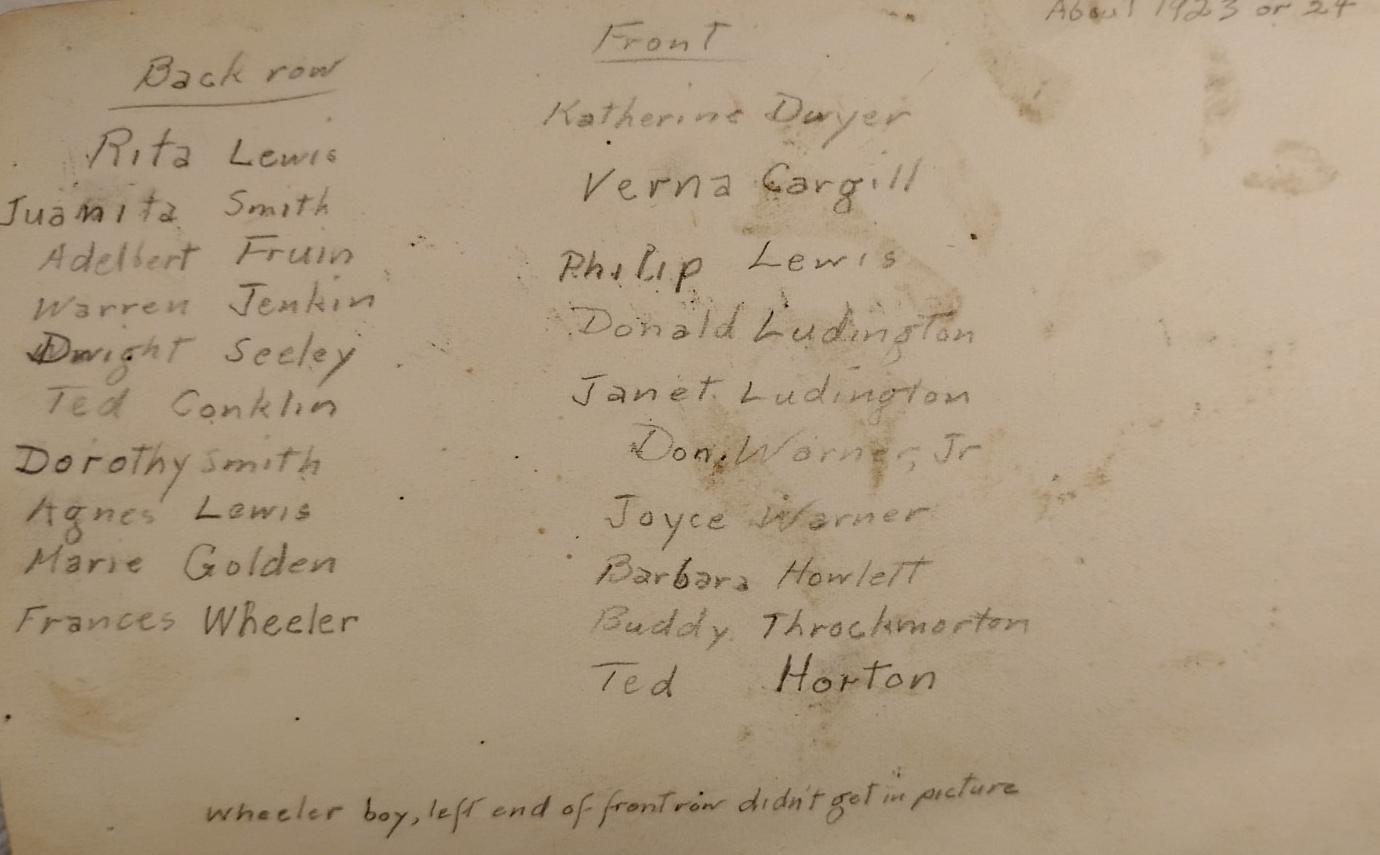 About 1923 or 24
Back row
Rita Lewis
Juanita Smith
Adelbert Fruin
Warren Jenkin
Dwight Seeley
Ted Conklin
Dorothy Smith
Agnes Lewis
Marie Golden
Frances Wheeler
Front
Katherine Dwyer
Verna Cargill
Philip Lewis
Donald Ludington
Janet Ludington
Don. Warner, Jr
Joyce Warner
Barbara Howlett
Buddy Throckmorton
Ted Horton
Wheeler boy, left end of front row didn't get in picture